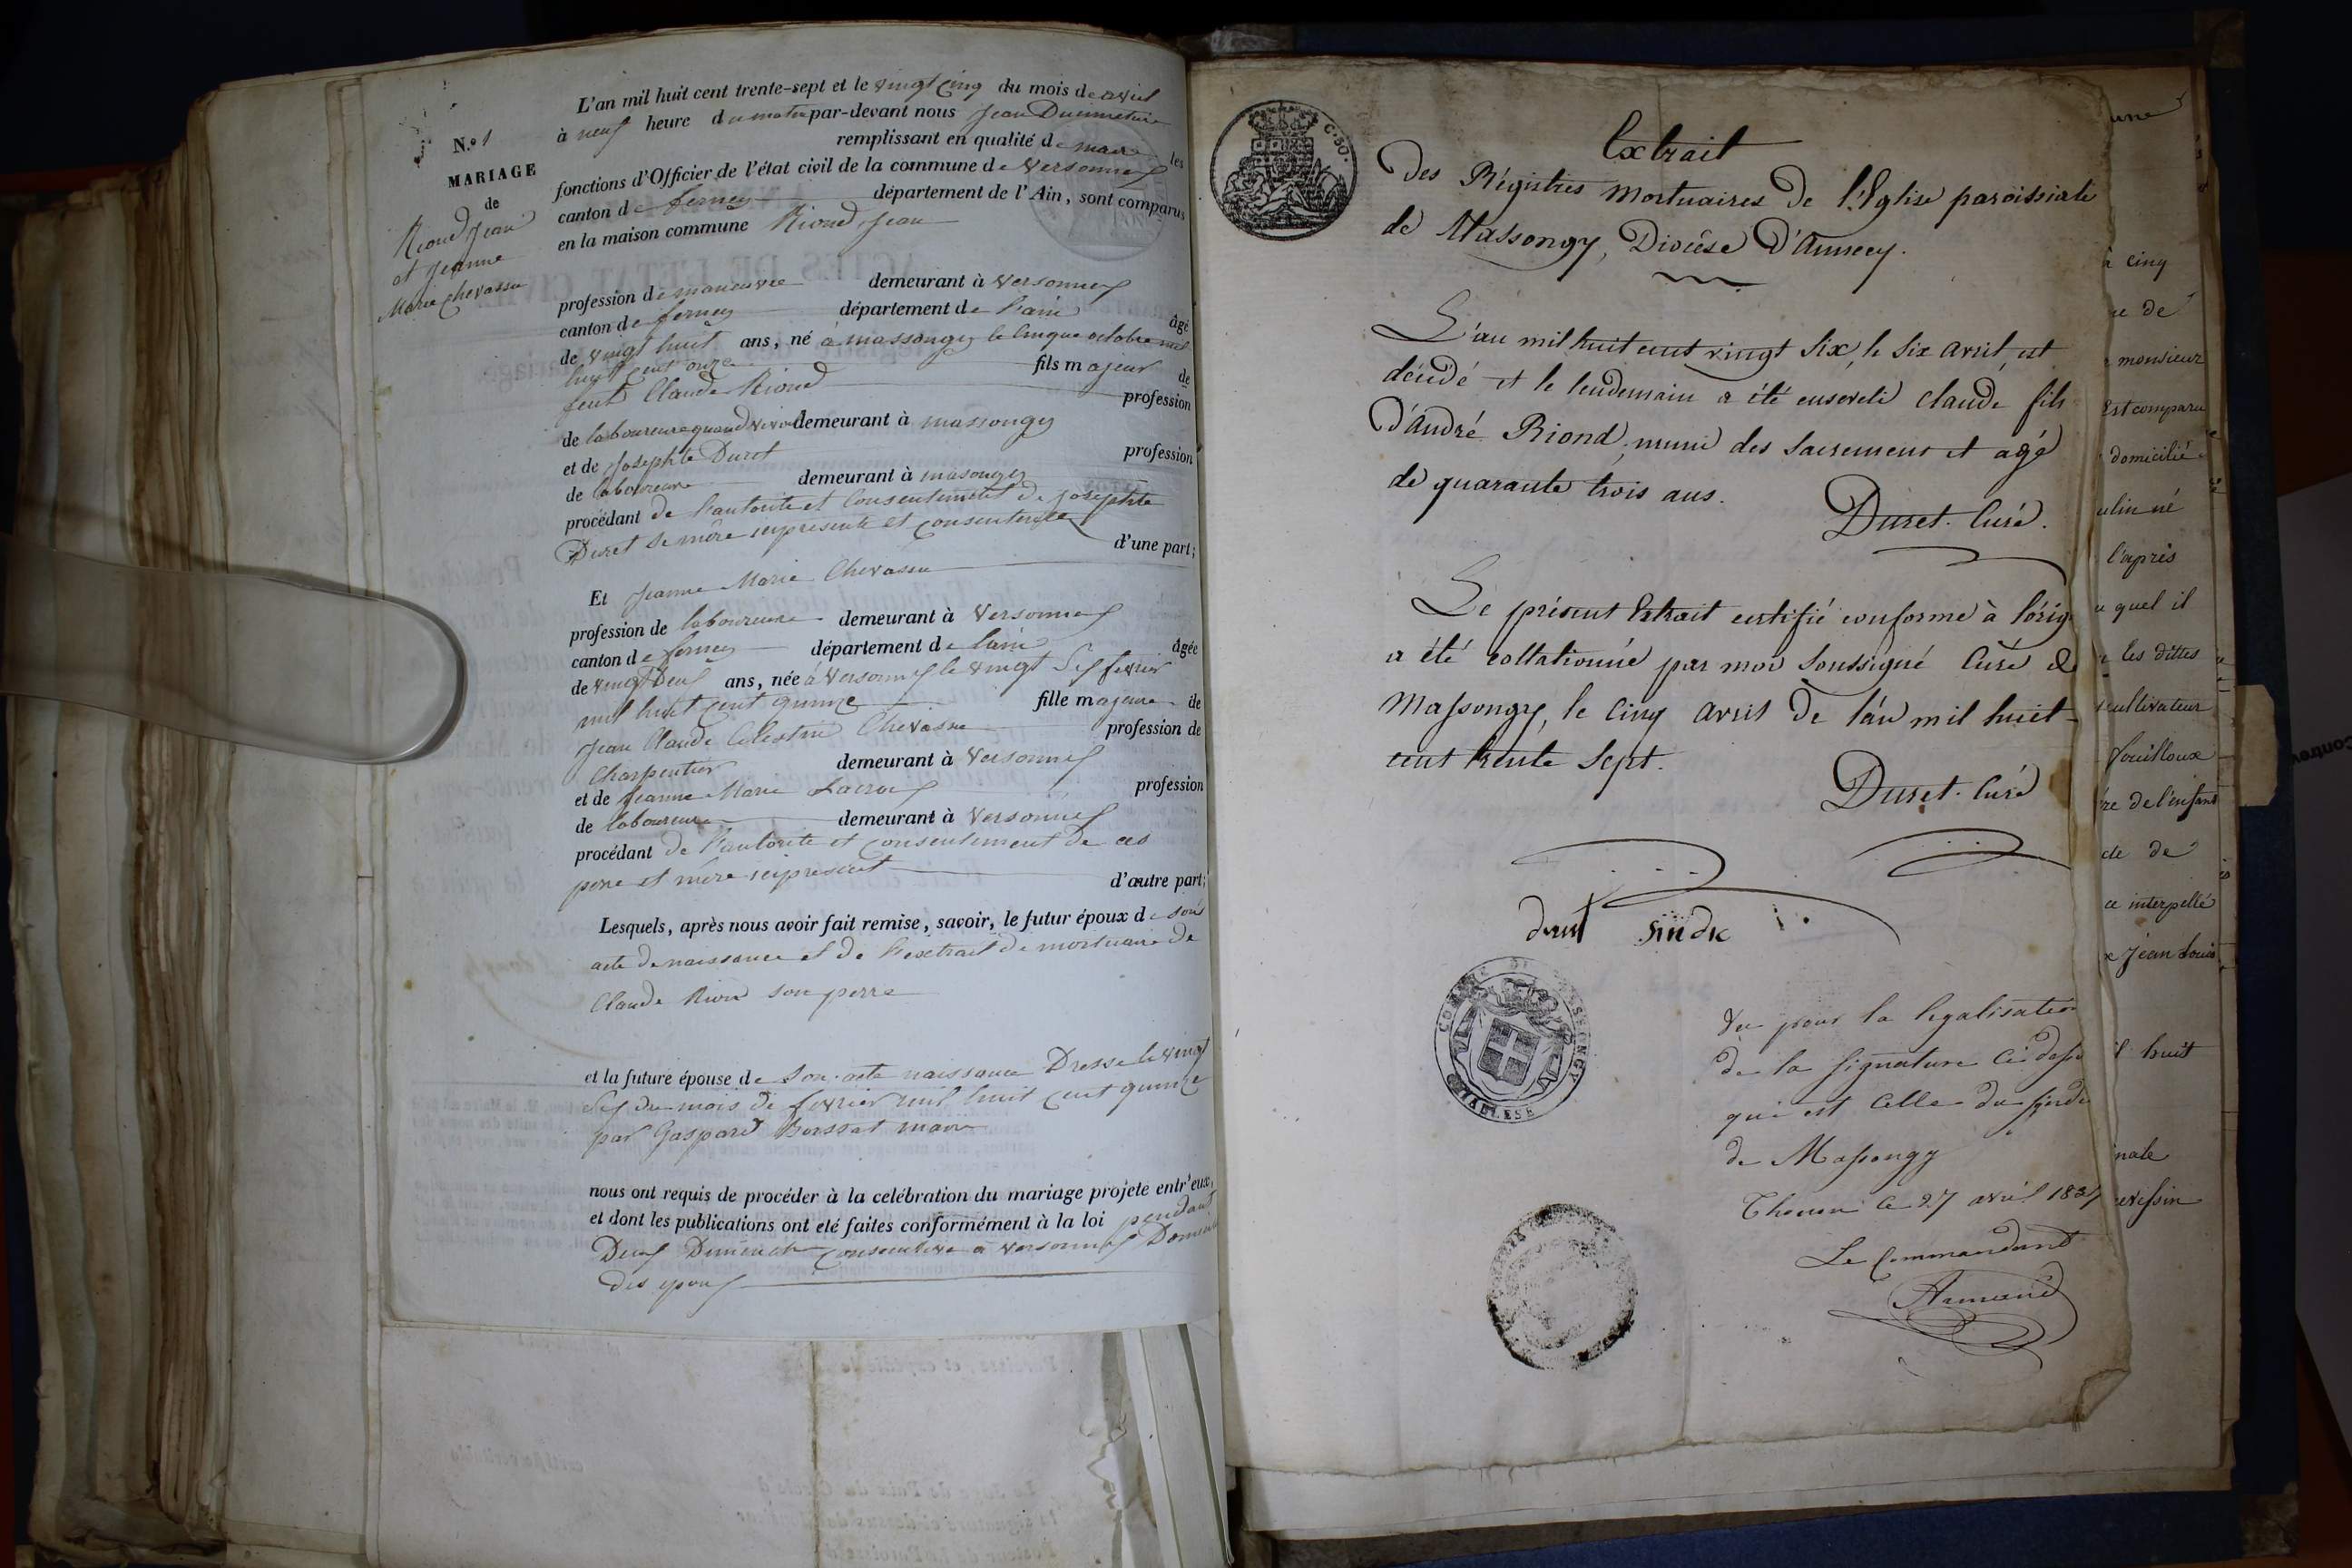 N.º 1
MARIAGE
de
Rioud Jean
et Jeanne
Marie Chevassu
L'an mil huit cent trente-sept et le vingt cinq du mois de avril
à neuf heure du matin par-devant nous Jean Ducimetiere
remplissant en qualité de maire les
fonctions d'Officier de l'état civil de la commune de Versonnex
canton de ferney département de l'Ain, sont comparus
en la maison commune Rioud Jean
profession de maneuvre demeurant à Versonnex
canton de ferney département de l'ain âgé
de vingt huit ans, né à massongy le cinque octobre mil
huit cent onze fils majeur de
feut Claude Rioud profession
de laboureure quand vivoit demeurant à massongy
et de Josephte Duret profession
de laboureure demeurant à masongy
procédant de l'autorite et Consentement de josephte
Duret se mère icy presente et consentente d'une part;
Et Jeanne Marie Chevassu
profession de laboureure demeurant à Versonnex
canton de ferney département de l'ain âgée
de vingt Deux ans, née à Versonnex le vingt Six fevrier
mil huit cent quinze fille majeure de
Jean Claude Celestin Chevassu profession de
Charpentier demeurant à Versonnex
et de Jeanne Marie Lacroix profession
de laboureure demeurant à Versonnex
procédant de l'autorite et consentement de ces
pere et mère icy present d'autre part;
Lesquels, après nous avoir fait remise, savoir, le futur époux de son
acte de naissance et de l'extrait de mortuaire de
Claude Riou son perre
et la future épouse de Son acte naissance Dresse le vingt
Six du mois de fevrier mil huit cent quinze
par Gaspard Boissat maire
nous ont requis de procéder à la celébration du mariage projete entr'eux,
et dont les publications ont eté faites conformément à la loi pendant
Deux Dimench consecutive a versonnex
des epoux
C. 50.
Extrait
Des Régistres Mortuaires De l'Eglise paroissiale
de Massongy, Diocèse D'Annecy.
L'an mil huit cent vingt Six, le Six avril, est
décédé et le lendemain a été enseveli Claude fils
D'André Riond, muni des Sacremens et agé
de quarante trois ans.
Duret. Curé.
Le présent Extrait certifié conforme à l'orig
a été collationné par moi Soussigné Curé de
Massongy, le cinq avril De l'an mil huit
cent trente Sept.
Duret. Curé
duret Sindic
Vu pour la legalisation
de la signature ci dess
qui est Celle du sindi
de Massongy
Thonon le 27 avril 1837
Le Commandant
Armand
une
à cinq
re de
monsieur
Est comparu
domicilié
ulin né
l'après
quel il
les dittes
cultivateur
fouilloux
re de l'enfant
cte de
ce interpellé
Jean Louis
il huit
nale